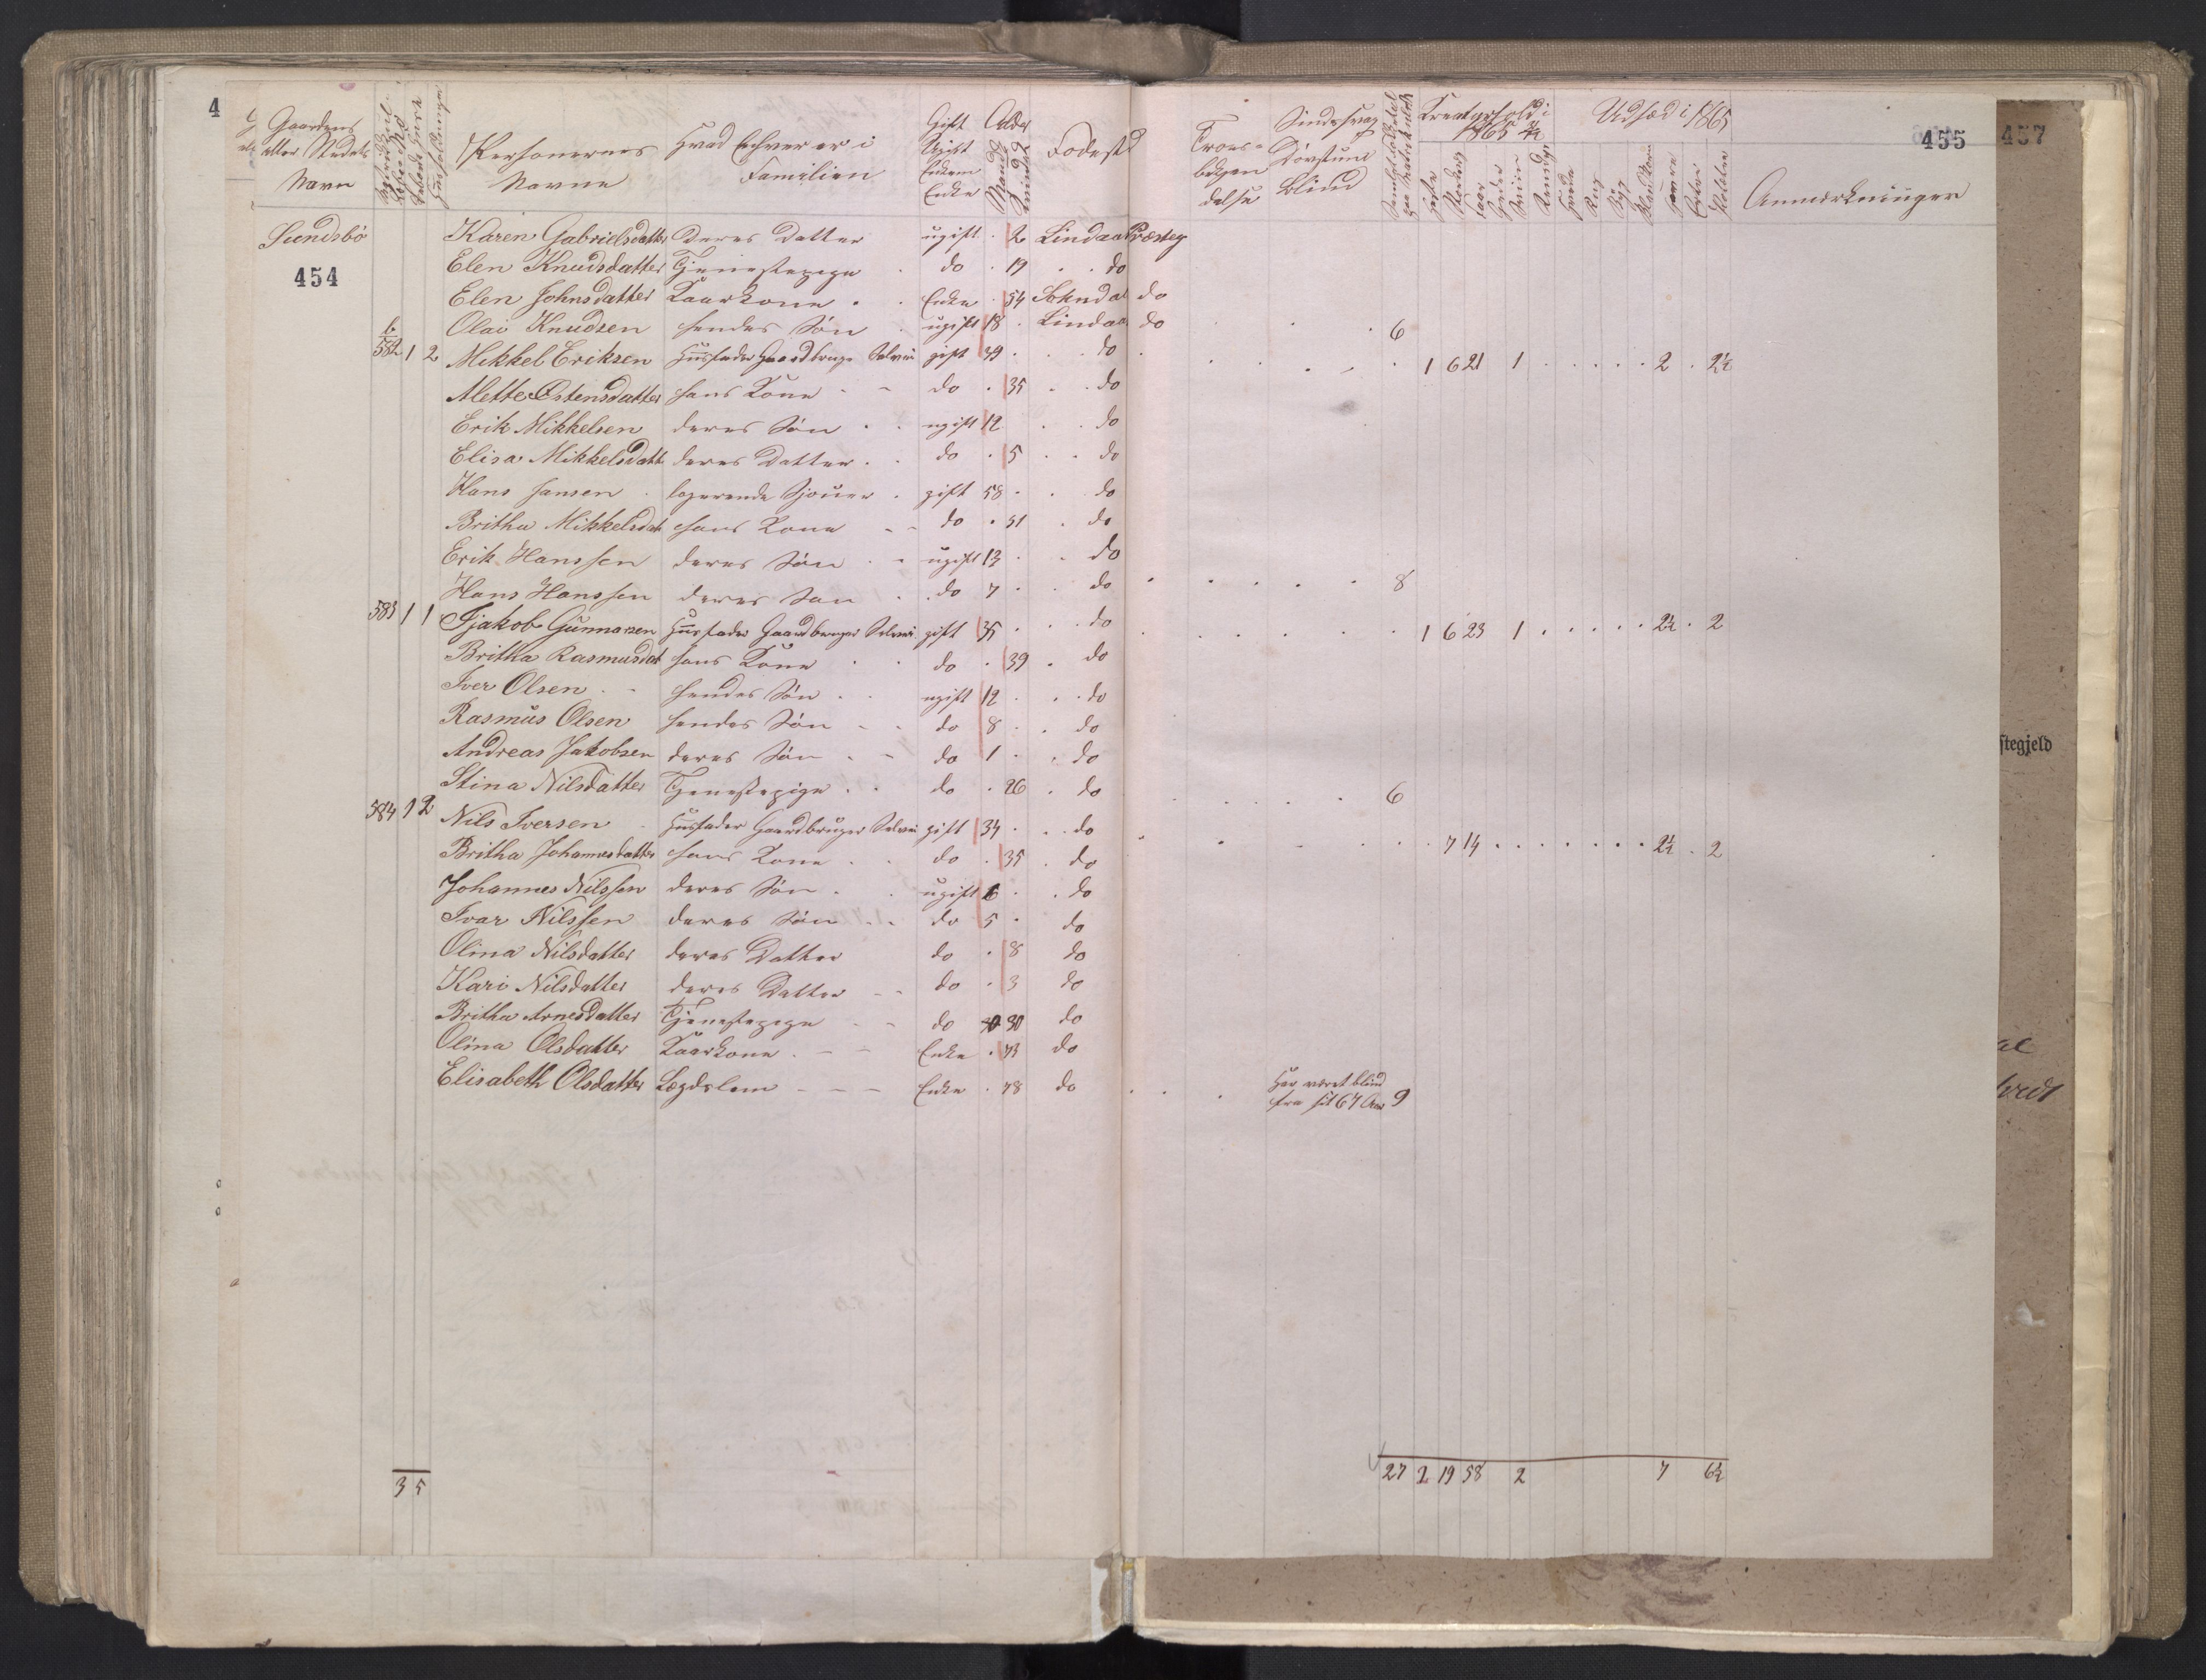 4
Gaardens
eller Stedets
Navn
Personernes
Navne
Hvad Enhver er i
Familien
Gift
Ugift
Enkem
Enke
Alder
Mandkj
Kvindekj
Fødested
Troes-
bekjen
delse
Sindssvag
Døvstum
Blind
Kreaturhold i
1865
Heste
Faar
Geder
Sviin
Rensdyr
Udsæd i 1865
Hvede
Rug
Byg
Erter
Poteter
Anmærkninger
455
457
Sundsbö
454
Karen Gabrielsdatter Deres Datter ugift . 2 Lindaas Præsteg
Elen Knudsdatter Tjenestepige . do . 19 . . do
Elen Johnsdatter Kaarkone . . Enke . 54 Sokndal do
Olai Knudsen hendes Søn . ugift 18 . Lindaas do 6
b
582 1 2 Mikkel Eriksen Huusfader Gaardbruger Selveier gift 39 . . . do 1 6 21 1 2 2½
Mette Østensdatter hans Kone do . 35 . . do
Erik Mikkelsen deres Søn . . ugift 12 . . do
Elisa Mikkelsdatt deres Datter . . do . 5 . . do
Hans Jansen . logerende Sjouer . gift 58 . . do
Britha Mikkelsdat hans Kone do . 51 . do
Erik Hanssen deres Søn ugift 13 . . do
Hans Hanssen deres Søn . do 7 . . do 8
583 1 1 Jjakob Gunnarsen Huusfader Gaardbruger Selveier gift 35 . . . do 1 6 23 1 2½ . 2
Britha Rasmusdat hans Kone . . do . 39 . do
Iver Olsen hendes Søn . . ugift 12 . . . do
Rasmus Olsen hendes Søn do 8 . . do
Andreas Jakobsen deres Søn do 1 . . do
Stina Nilsdatter Tjenestepige . . do . 26 . do 6
584 1 2 Nils Iversen Huusfader Gaardbruger Selveier gift 34 . . . do 7 14 2½ . 2
Britha Johannesdatter hans Kone . . do . 35 . do
Johannes Nilssen deres Søn . . ugift 6 . . do
Ivar Nilssen deres Søn . . do 5 . do
Olina Nilsdatter deres Datter do . 8 do
Kari Nilsdatter deres Datter do . 3 do
Britha Arnesdatter Tjenestepige do 30 do
Olina Olsdatter Kaarkone . Enke . 73 do
Elisabeth Olsdatter Lægdslem Enke . 78 do Har været blind
fra sit 67 Aar 9
3 5
27 2 19 58 2 7 6½
stegjeld